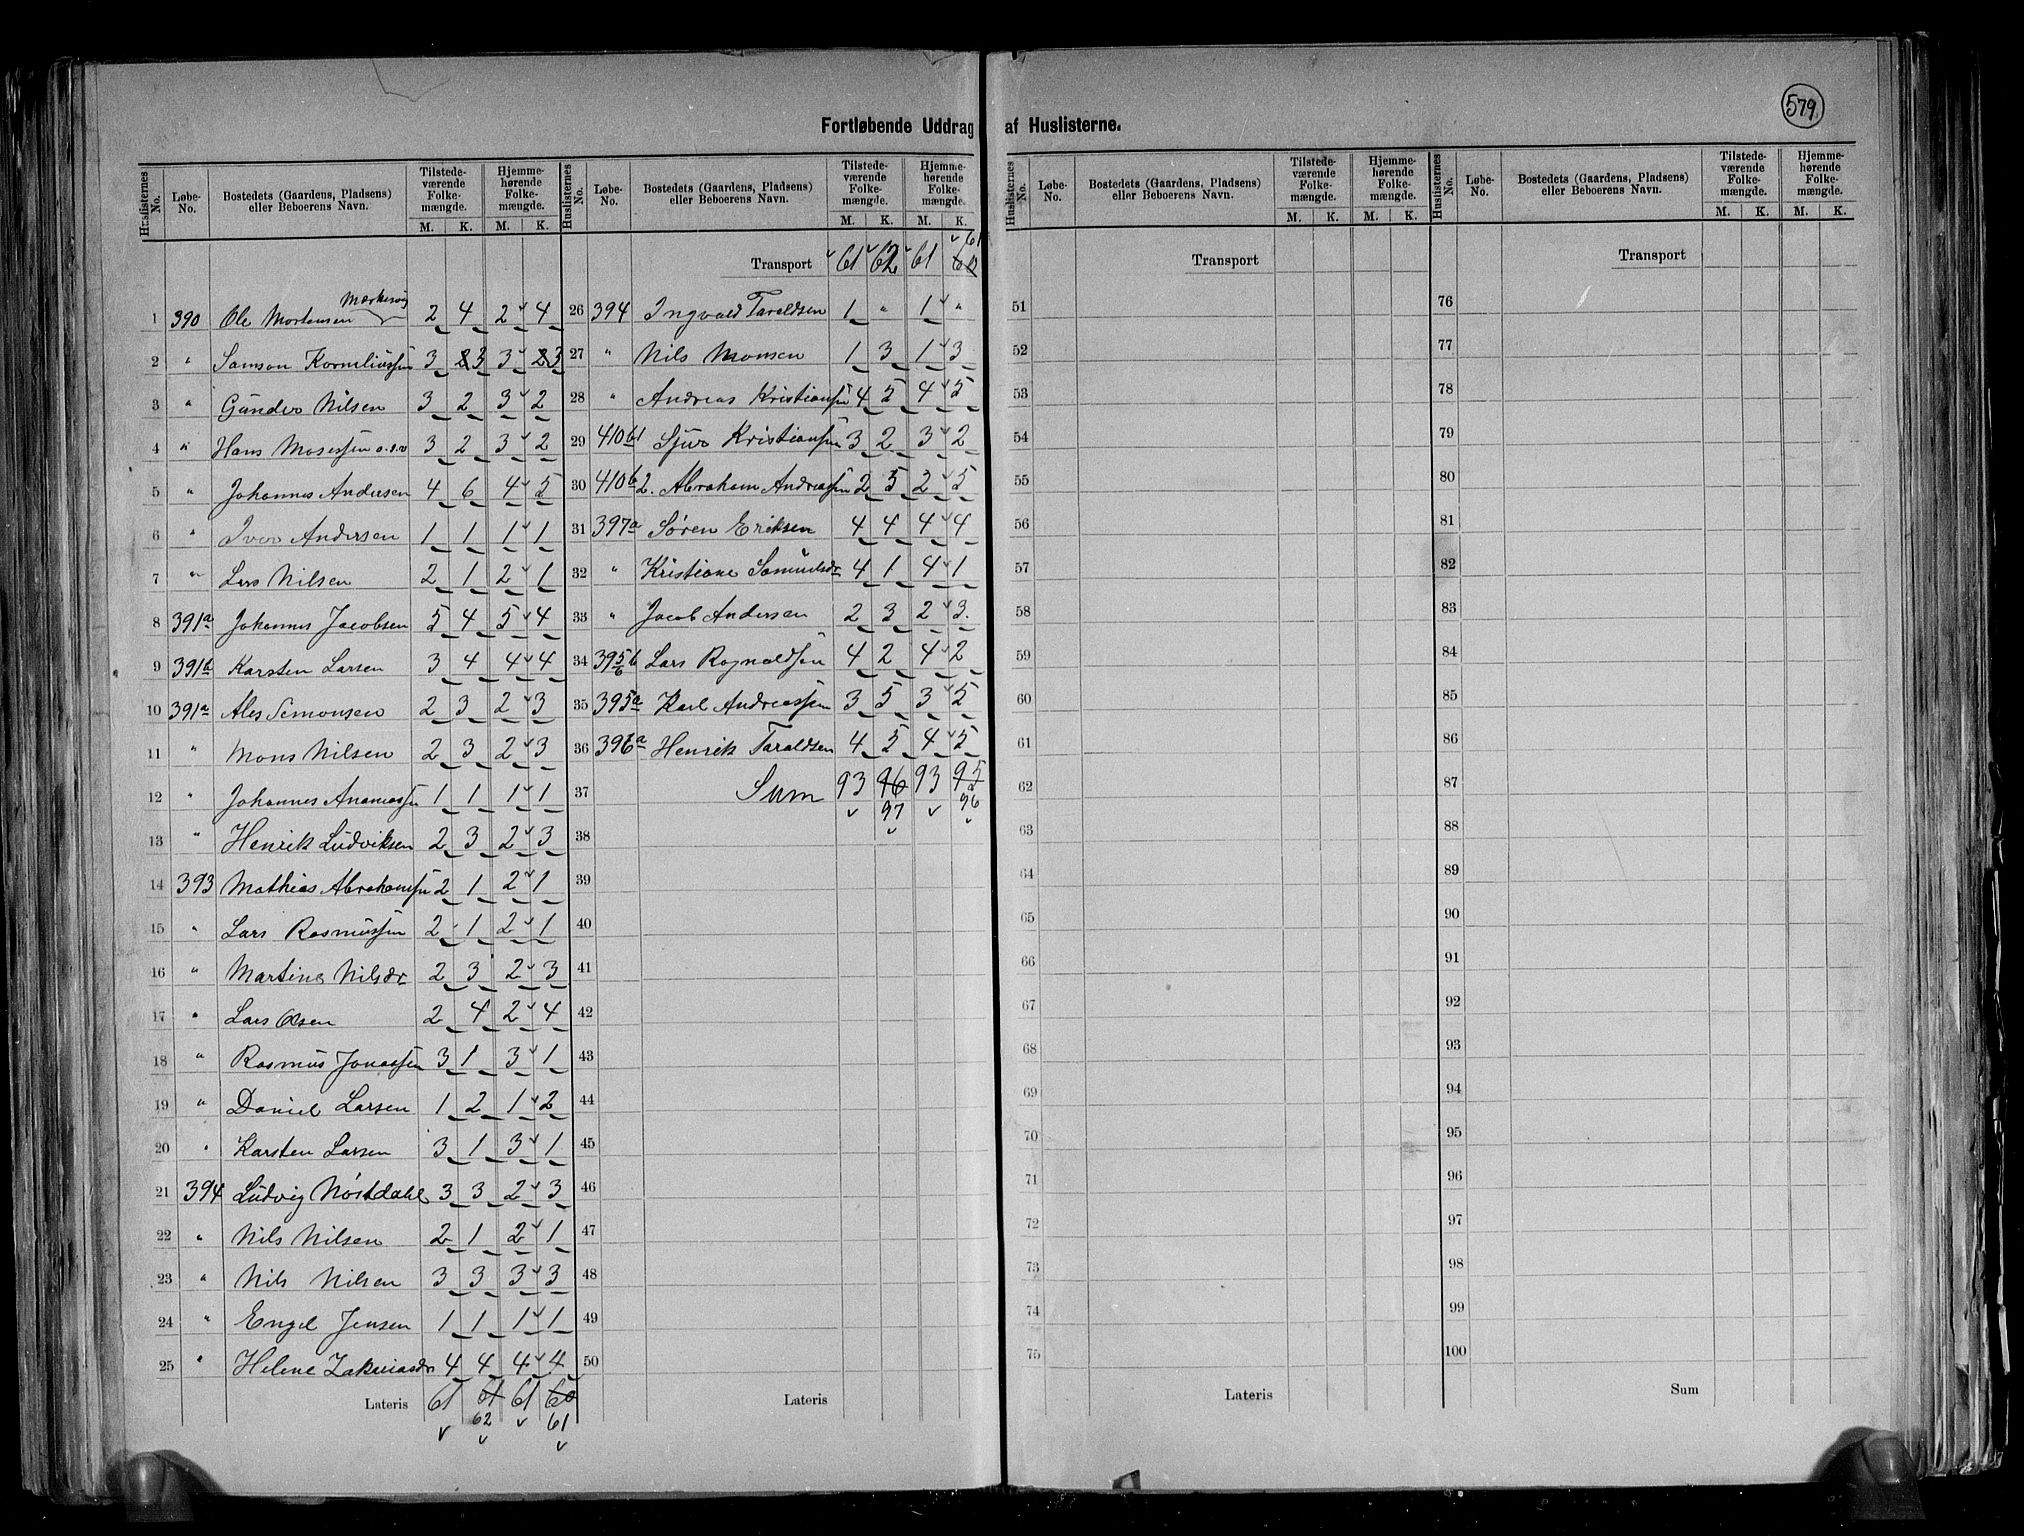 579
Fortløbende Uddrag af Huslisterne.
Huslisternes No. | Løbe-No. | Bostedets (Gaardens, Pladsens) eller Beboerens Navn. | Tilstedeværende Folkemængde. M. K. | Hjemmehørende Folkemængde. M. K.
1 390 Ole Mortensen Mærkesvig 2 4 2 4
2 " Samson Korneliussen 3 2 3 3 2 3
3 " Gunder Nilsen 3 2 3 2
4 " Hans Mosessen 3 2 3 2
5 " Johannes Andersen 4 6 4 5
6 " Iver Andersen 1 1 1 1
7 " Lars Nilsen 2 1 2 1
8 391a Johannes Jacobsen 5 4 5 4
9 391b Karsten Larsen 3 4 4 4
10 391a Ales Simonsen 2 3 2 3
11 " Mons Nilsen 2 3 2 3
12 " Johannes Ananiassen 1 1 1 1
13 " Henrik Ludviksen 2 3 2 3
14 393 Mathias Abrahamsen 2 1 2 1
15 " Lars Rasmussen 2 1 2 1
16 " Martine Nilsdr 2 3 2 3
17 " Lars Olsen 2 4 2 4
18 " Rasmus Jonassen 3 1 3 1
19 " Daniel Larsen 1 2 1 2
20 " Karsten Larsen 3 1 3 1
21 394 Ludvig Nøstdahl 3 3 2 3
22 " Nils Nilsen 2 1 2 1
23 " Nils Nilsen 3 3 3 3
24 " Engel Jensen 1 1 1 1
25 " Helene Zakariasdr 4 4 4 4
Lateris 61 61 61 60
62 61
Huslisternes No. | Løbe-No. | Bostedets (Gaardens, Pladsens) eller Beboerens Navn. | Tilstedeværende Folkemængde. M. K. | Hjemmehørende Folkemængde. M. K.
61
Transport 61 62 61 60
26 394 Ingvald Taraldsen 1 " 1 "
27 " Nils Monsen 1 3 1 3
28 " Andreas Kristiansen 4 5 4 5
29 410b1 Sjur Kristiansen 3 2 3 2
30 410b2. Abraham Andreassen 2 5 2 5
31 397a Søren Eriksen 4 4 4 4
32 " Kristiane Samuelsdr 4 1 4 1
33 " Jacob Andersen 2 3 2 3.
34 395b Lars Ragnaldsen 4 2 4 2
35 395a Karl Andreassen 3 5 3 5
36 396a Henrik Taraldsen 4 5 4 5
37 Sum 93 96 93 95
97 96
38
39
40
41
42
43
44
45
46
47
48
49
50
Lateris
Huslisternes No. | Løbe-No. | Bostedets (Gaardens, Pladsens) eller Beboerens Navn. | Tilstedeværende Folkemængde. M. K. | Hjemmehørende Folkemængde. M. K.
Transport
51
52
53
54
55
56
57
58
59
60
61
62
63
64
65
66
67
68
69
70
71
72
73
74
75
Lateris
Huslisternes No. | Løbe-No. | Bostedets (Gaardens, Pladsens) eller Beboerens Navn. | Tilstedeværende Folkemængde. M. K. | Hjemmehørende Folkemængde. M. K.
Transport
76
77
78
79
80
81
82
83
84
85
86
87
88
89
90
91
92
93
94
95
96
97
98
99
100
Sum